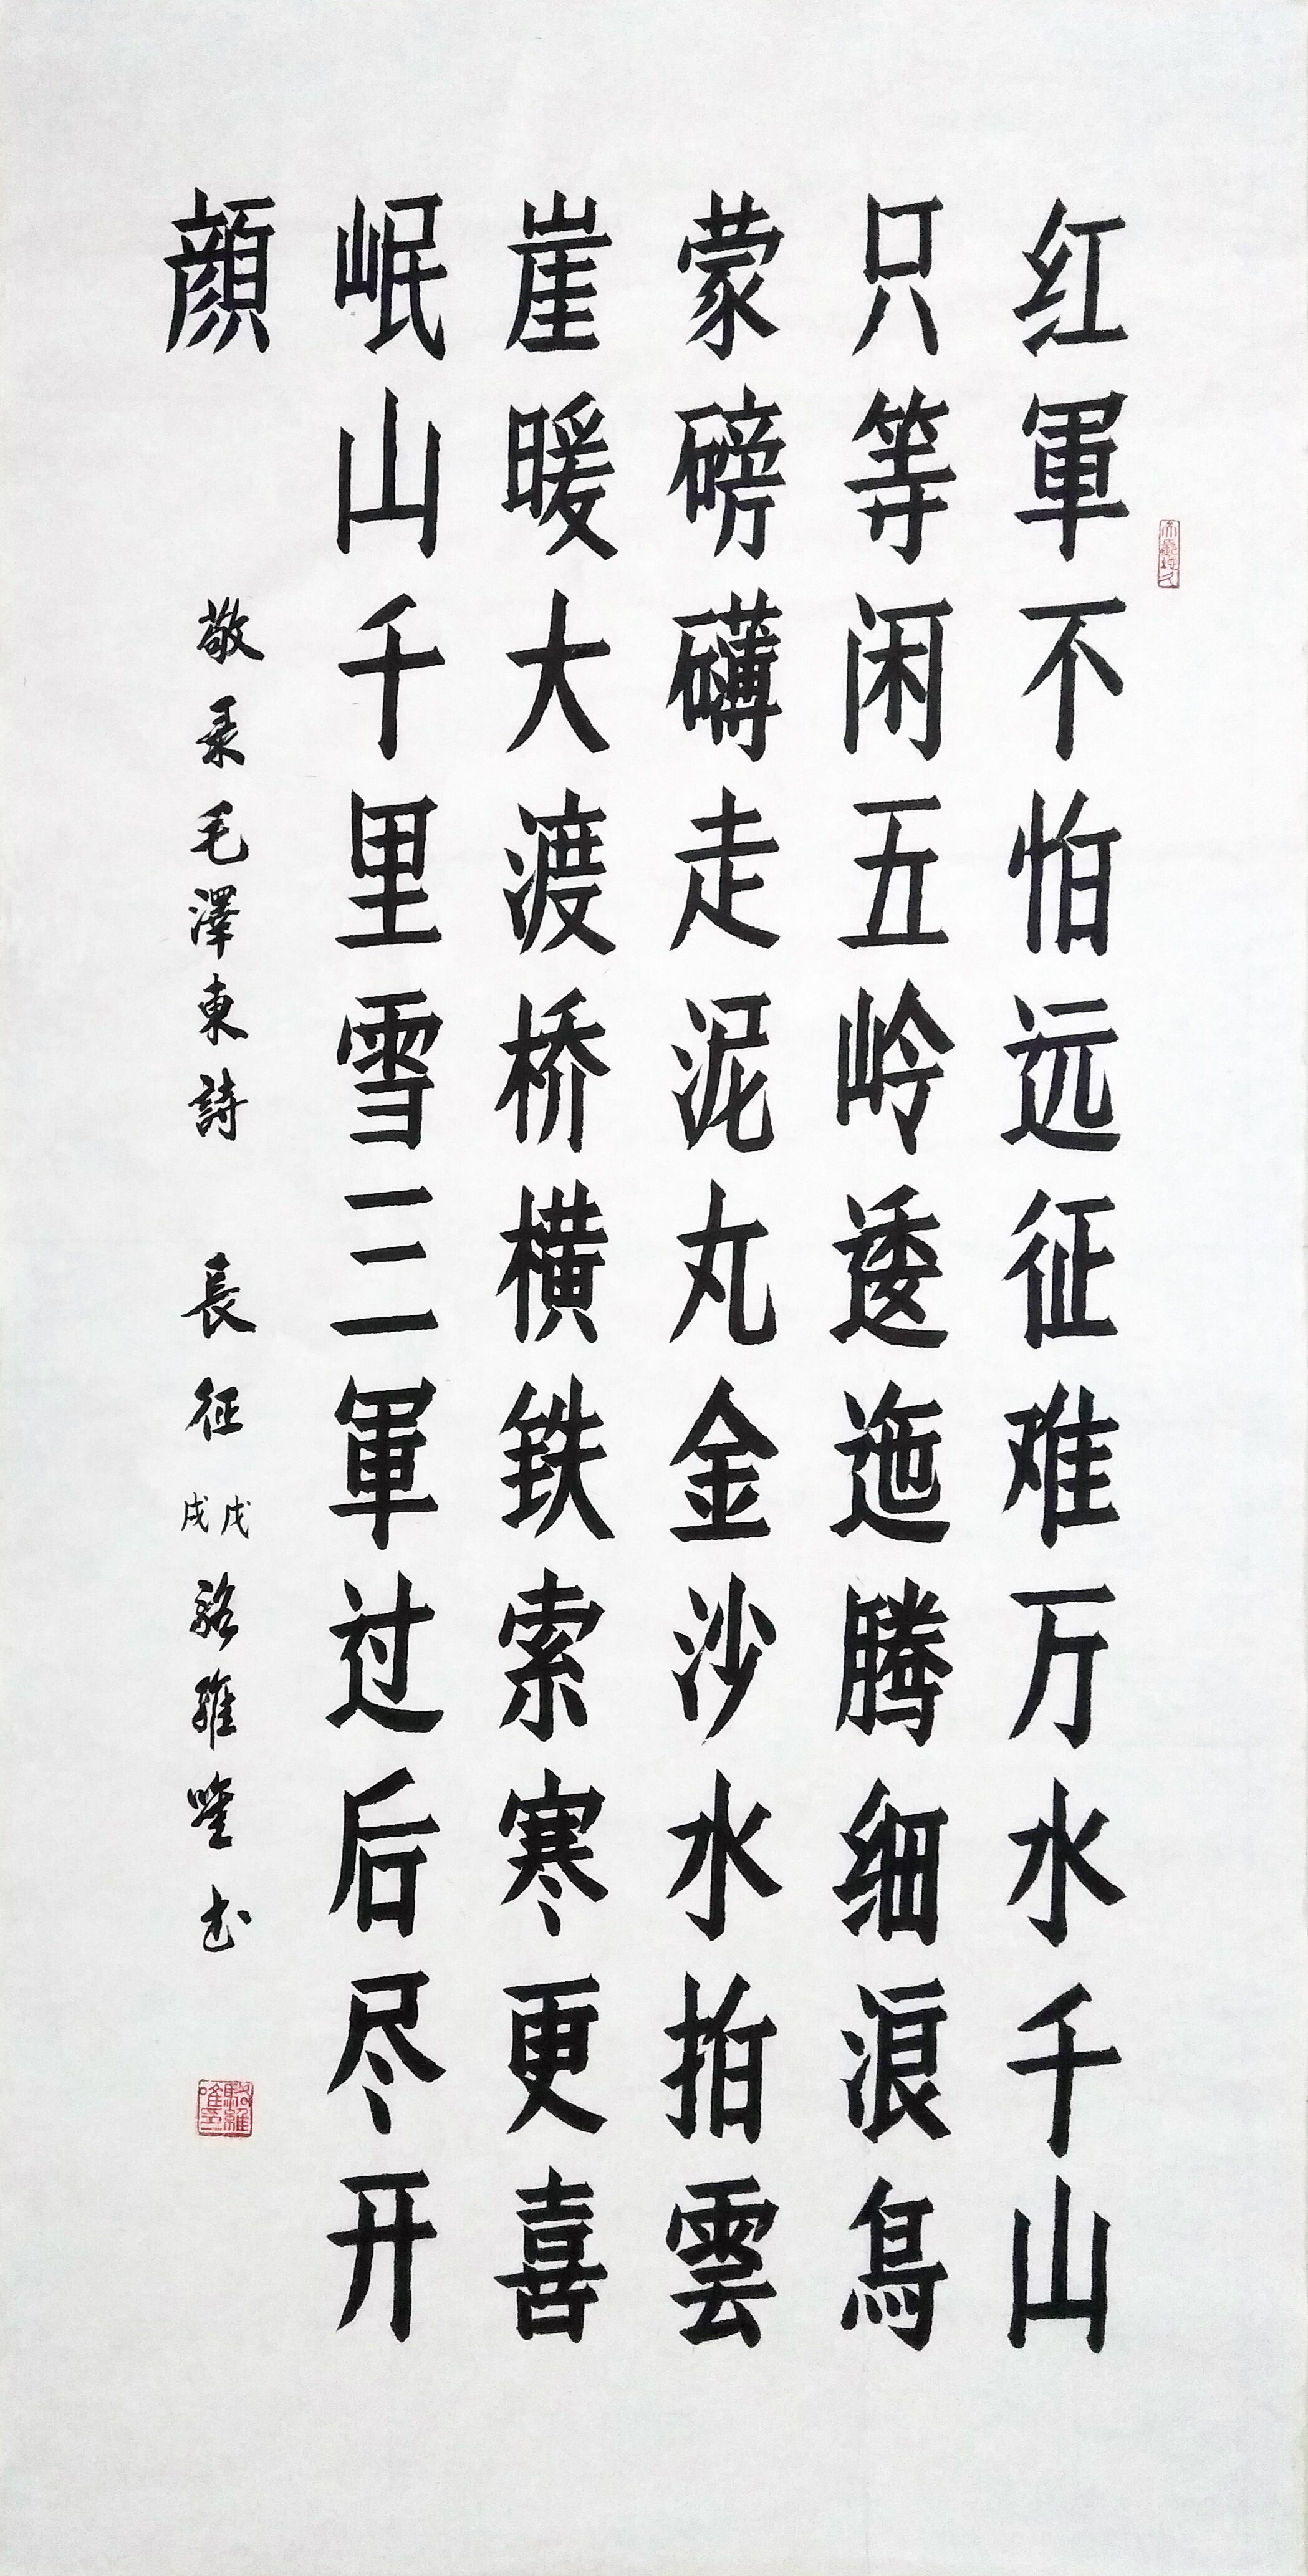 红軍不怕远征难万水千山
只等闲五岭逶迤腾细浪烏
蒙磅礴走泥丸金沙水拍雲
崖暖大渡桥横铁索寒更喜
岷山千里雪三軍过后尽开
顔
敬录毛澤東詩 長征 戊戌 駱維 书